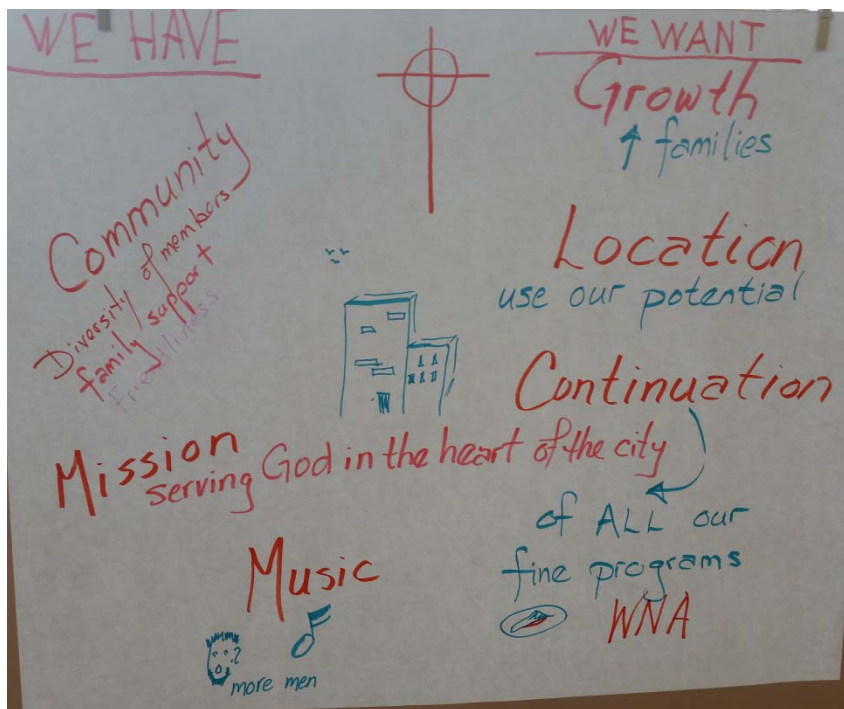 WE HAVE
Community
Diversity of members
family support
friendliness
Mission
serving God in the heart of the city
Music
more men
WE WANT
Growth
↑ families
Location
use our potential
Continuation
of ALL our
fine programs
WNA